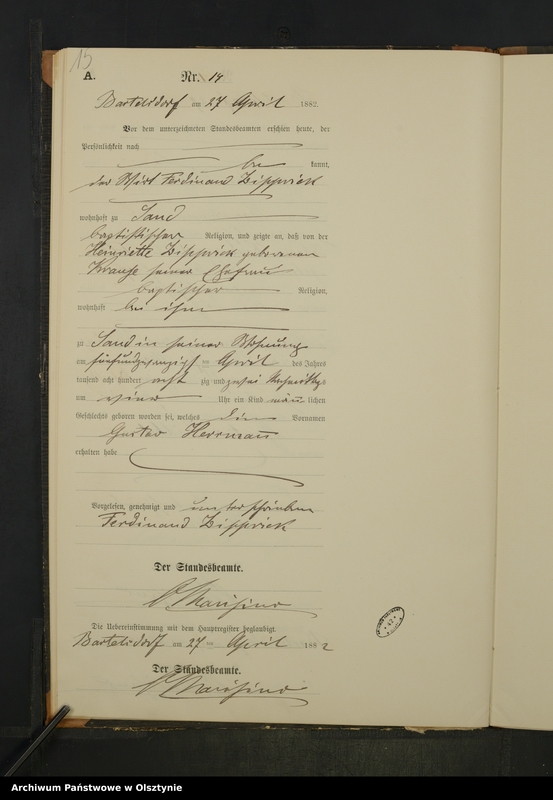 15
A.
Nr. 14
Bartelsdorf am 27 April 1882.
Vor dem unterzeichneten Standesbeamten erschien heute, der
Persönlichkeit nach
be kannt,
der Wirt Ferdinand
wohnhaft zu Sand
baptistischer Religion, und zeigte an, daß von der
Henriette geborenen
Krause seiner Ehefrau
baptischer Religion,
wohnhaft bei ihm
zu Sand in seiner Wohnung
am fünfundzwanzigsten April des Jahres
tausend acht hundert acht zig und zwei Nachmittags
um Uhr ein Kind männ lichen
Geschlechts geboren worden sei, welches die Vornamen
Gustav Herrmann
erhalten habe
Vorgelesen, genehmigt und unterschrieben
Ferdinand
Der Standesbeamte.
Die Uebereinstimmung mit dem Hauptregister beglaubigt.
Bartelsdorf am 27 ten April 1882
Der Standesbeamte.
Archiwum Państwowe w Olsztynie